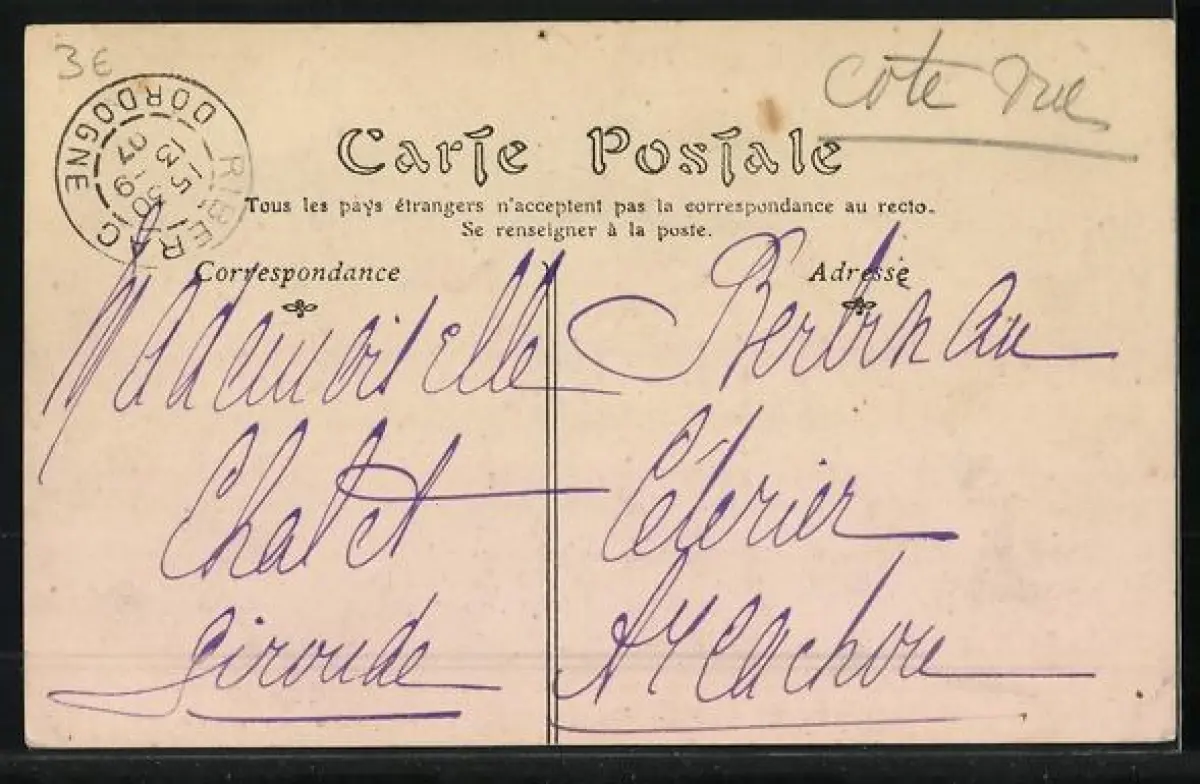 3€
cote vue
RIBERAC
DORDOGNE
15 30
13 -9
07
Carte Postale
Tous les pays étrangers n'acceptent pas la correspondance au recto.
Se renseigner à la poste.
Correspondance
Adresse
Mademoiselle
Chalet
Gironde
Arcachon